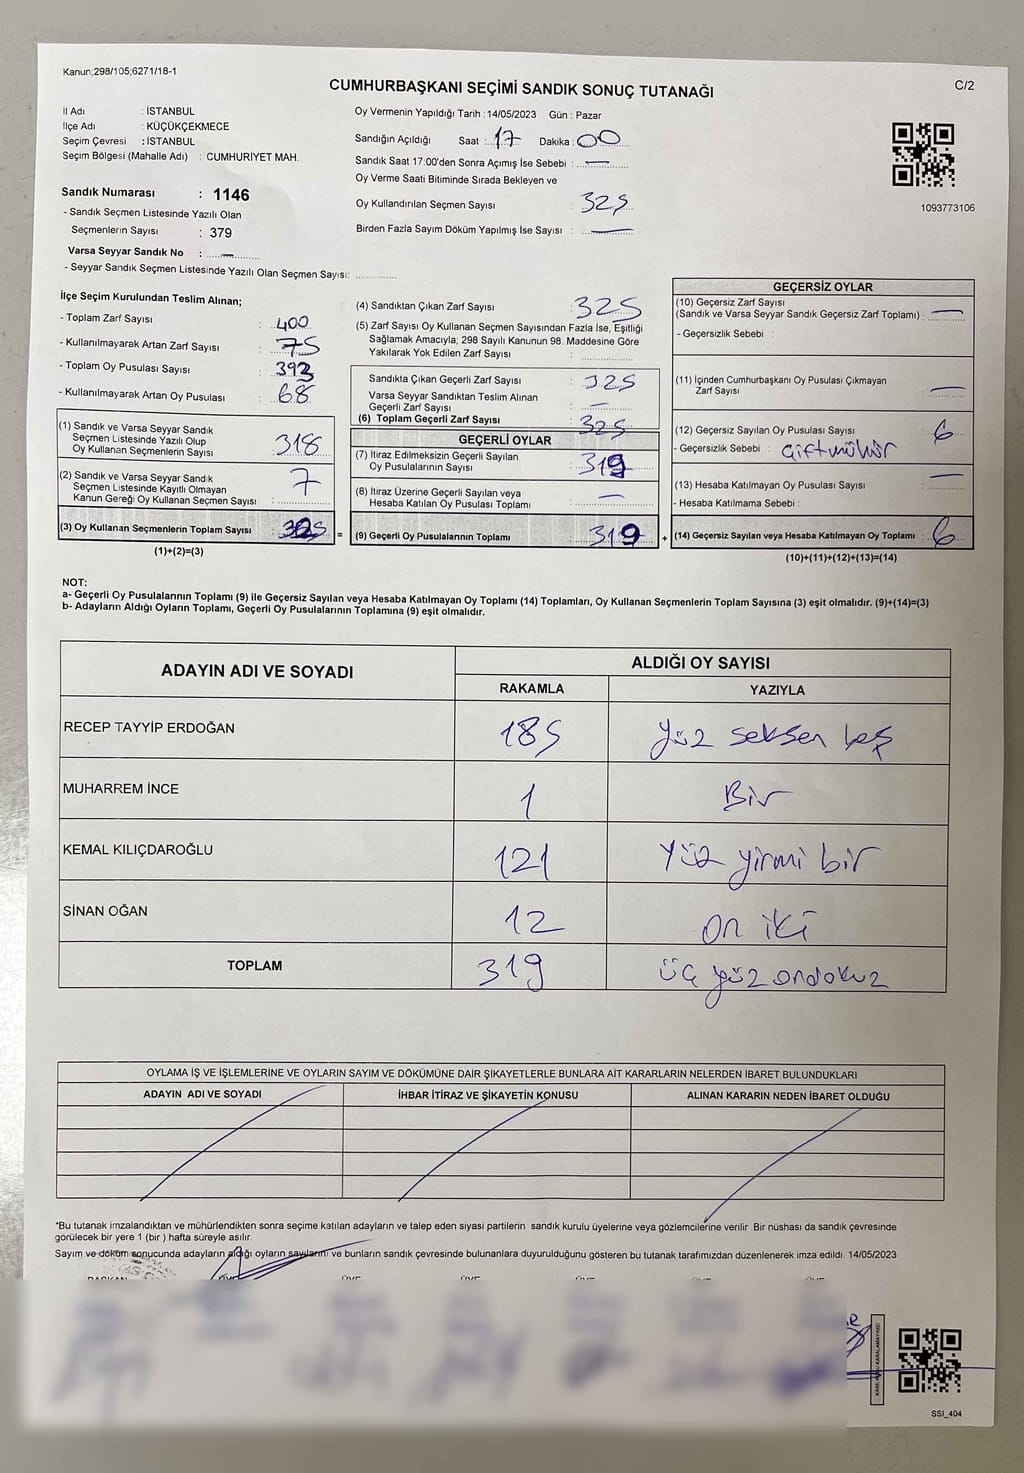 Kanun;298/105;6271/18-1
CUMHURBAŞKANI SEÇİMİ SANDIK SONUÇ TUTANAĞI
C/2
İl Adı : İSTANBUL
İlçe Adı : KÜÇÜKÇEKMECE
Seçim Çevresi : İSTANBUL
Seçim Bölgesi (Mahalle Adı) : CUMHURİYET MAH.
Sandık Numarası : 1146
- Sandık Seçmen Listesinde Yazılı Olan
Seçmenlerin Sayısı : 379
Varsa Seyyar Sandık No : —
- Seyyar Sandık Seçmen Listesinde Yazılı Olan Seçmen Sayısı:
Oy Vermenin Yapıldığı Tarih : 14/05/2023 Gün : Pazar
Sandığın Açıldığı Saat : 17 Dakika : 00
Sandık Saat 17:00'den Sonra Açımış İse Sebebi : —
Oy Verme Saati Bitiminde Sırada Bekleyen ve
Oy Kullandırılan Seçmen Sayısı : 325
Birden Fazla Sayım Döküm Yapılmış İse Sayısı : —
1093773106
İlçe Seçim Kurulundan Teslim Alınan;
- Toplam Zarf Sayısı : 400
- Kullanılmayarak Artan Zarf Sayısı : 75
- Toplam Oy Pusulası Sayısı : 393
- Kullanılmayarak Artan Oy Pusulası : 68
(1) Sandık ve Varsa Seyyar Sandık
Seçmen Listesinde Yazılı Olup
Oy Kullanan Seçmenlerin Sayısı 318
(2) Sandık ve Varsa Seyyar Sandık
Seçmen Listesinde Kayıtlı Olmayan
Kanun Gereği Oy Kullanan Seçmen Sayısı : 7
(3) Oy Kullanan Seçmenlerin Toplam Sayısı 325 =
(1)+(2)=(3)
(4) Sandıktan Çıkan Zarf Sayısı : 325
(5) Zarf Sayısı Oy Kullanan Seçmen Sayısından Fazla İse, Eşitliği
Sağlamak Amacıyla; 298 Sayılı Kanunun 98. Maddesine Göre
Yakılarak Yok Edilen Zarf Sayısı :
Sandıkta Çıkan Geçerli Zarf Sayısı : 325
Varsa Seyyar Sandıktan Teslim Alınan
Geçerli Zarf Sayısı : —
(6) Toplam Geçerli Zarf Sayısı : 325
GEÇERLİ OYLAR
(7) İtiraz Edilmeksizin Geçerli Sayılan
Oy Pusulalarının Sayısı : 319
(8) İtiraz Üzerine Geçerli Sayılan veya
Hesaba Katılan Oy Pusulası Toplamı : —
(9) Geçerli Oy Pusulalarının Toplamı : 319 +
GEÇERSİZ OYLAR
(10) Geçersiz Zarf Sayısı
(Sandık ve Varsa Seyyar Sandık Geçersiz Zarf Toplamı) : —
- Geçersizlik Sebebi :
(11) İçinden Cumhurbaşkanı Oy Pusulası Çıkmayan
Zarf Sayısı : —
(12) Geçersiz Sayılan Oy Pusulası Sayısı : 6
- Geçersizlik Sebebi : çift mühür
(13) Hesaba Katılmayan Oy Pusulası Sayısı : —
- Hesaba Katılmama Sebebi :
(14) Geçersiz Sayılan veya Hesaba Katılmayan Oy Toplamı : 6
(10)+(11)+(12)+(13)=(14)
NOT:
a- Geçerli Oy Pusulalarının Toplamı (9) ile Geçersiz Sayılan veya Hesaba Katılmayan Oy Toplamı (14) Toplamları, Oy Kullanan Seçmenlerin Toplam Sayısına (3) eşit olmalıdır. (9)+(14)=(3)
b- Adayların Aldığı Oyların Toplamı, Geçerli Oy Pusulalarının Toplamına (9) eşit olmalıdır.
ADAYIN ADI VE SOYADI
ALDIĞI OY SAYISI
RAKAMLA YAZIYLA
RECEP TAYYİP ERDOĞAN 185 yüz seksen beş
MUHARREM İNCE 1 Bir
KEMAL KILIÇDAROĞLU 121 yüz yirmi bir
SİNAN OĞAN 12 on iki
TOPLAM 319 üç yüz ondokuz
OYLAMA İŞ VE İŞLEMLERİNE VE OYLARIN SAYIM VE DÖKÜMÜNE DAİR ŞİKAYETLERLE BUNLARA AİT KARARLARIN NELERDEN İBARET BULUNDUKLARI
ADAYIN ADI VE SOYADI İHBAR İTİRAZ VE ŞİKAYETİN KONUSU ALINAN KARARIN NEDEN İBARET OLDUĞU
*Bu tutanak imzalandıktan ve mühürlendikten sonra seçime katılan adayların ve talep eden siyasi partilerin sandık kurulu üyelerine veya gözlemcilerine verilir .Bir nüshası da sandık çevresinde
görülecek bir yere 1 (bir ) hafta süreyle asılır.
Sayım ve döküm sonucunda adayların aldığı oyların sayılarını ve bunların sandık çevresinde bulunanlara duyurulduğunu gösteren bu tutanak tarafımızdan düzenlenerek imza edildi. 14/05/2023
BAŞKAN ÜYE ÜYE ÜYE ÜYE ÜYE ÜYE
SSI_404